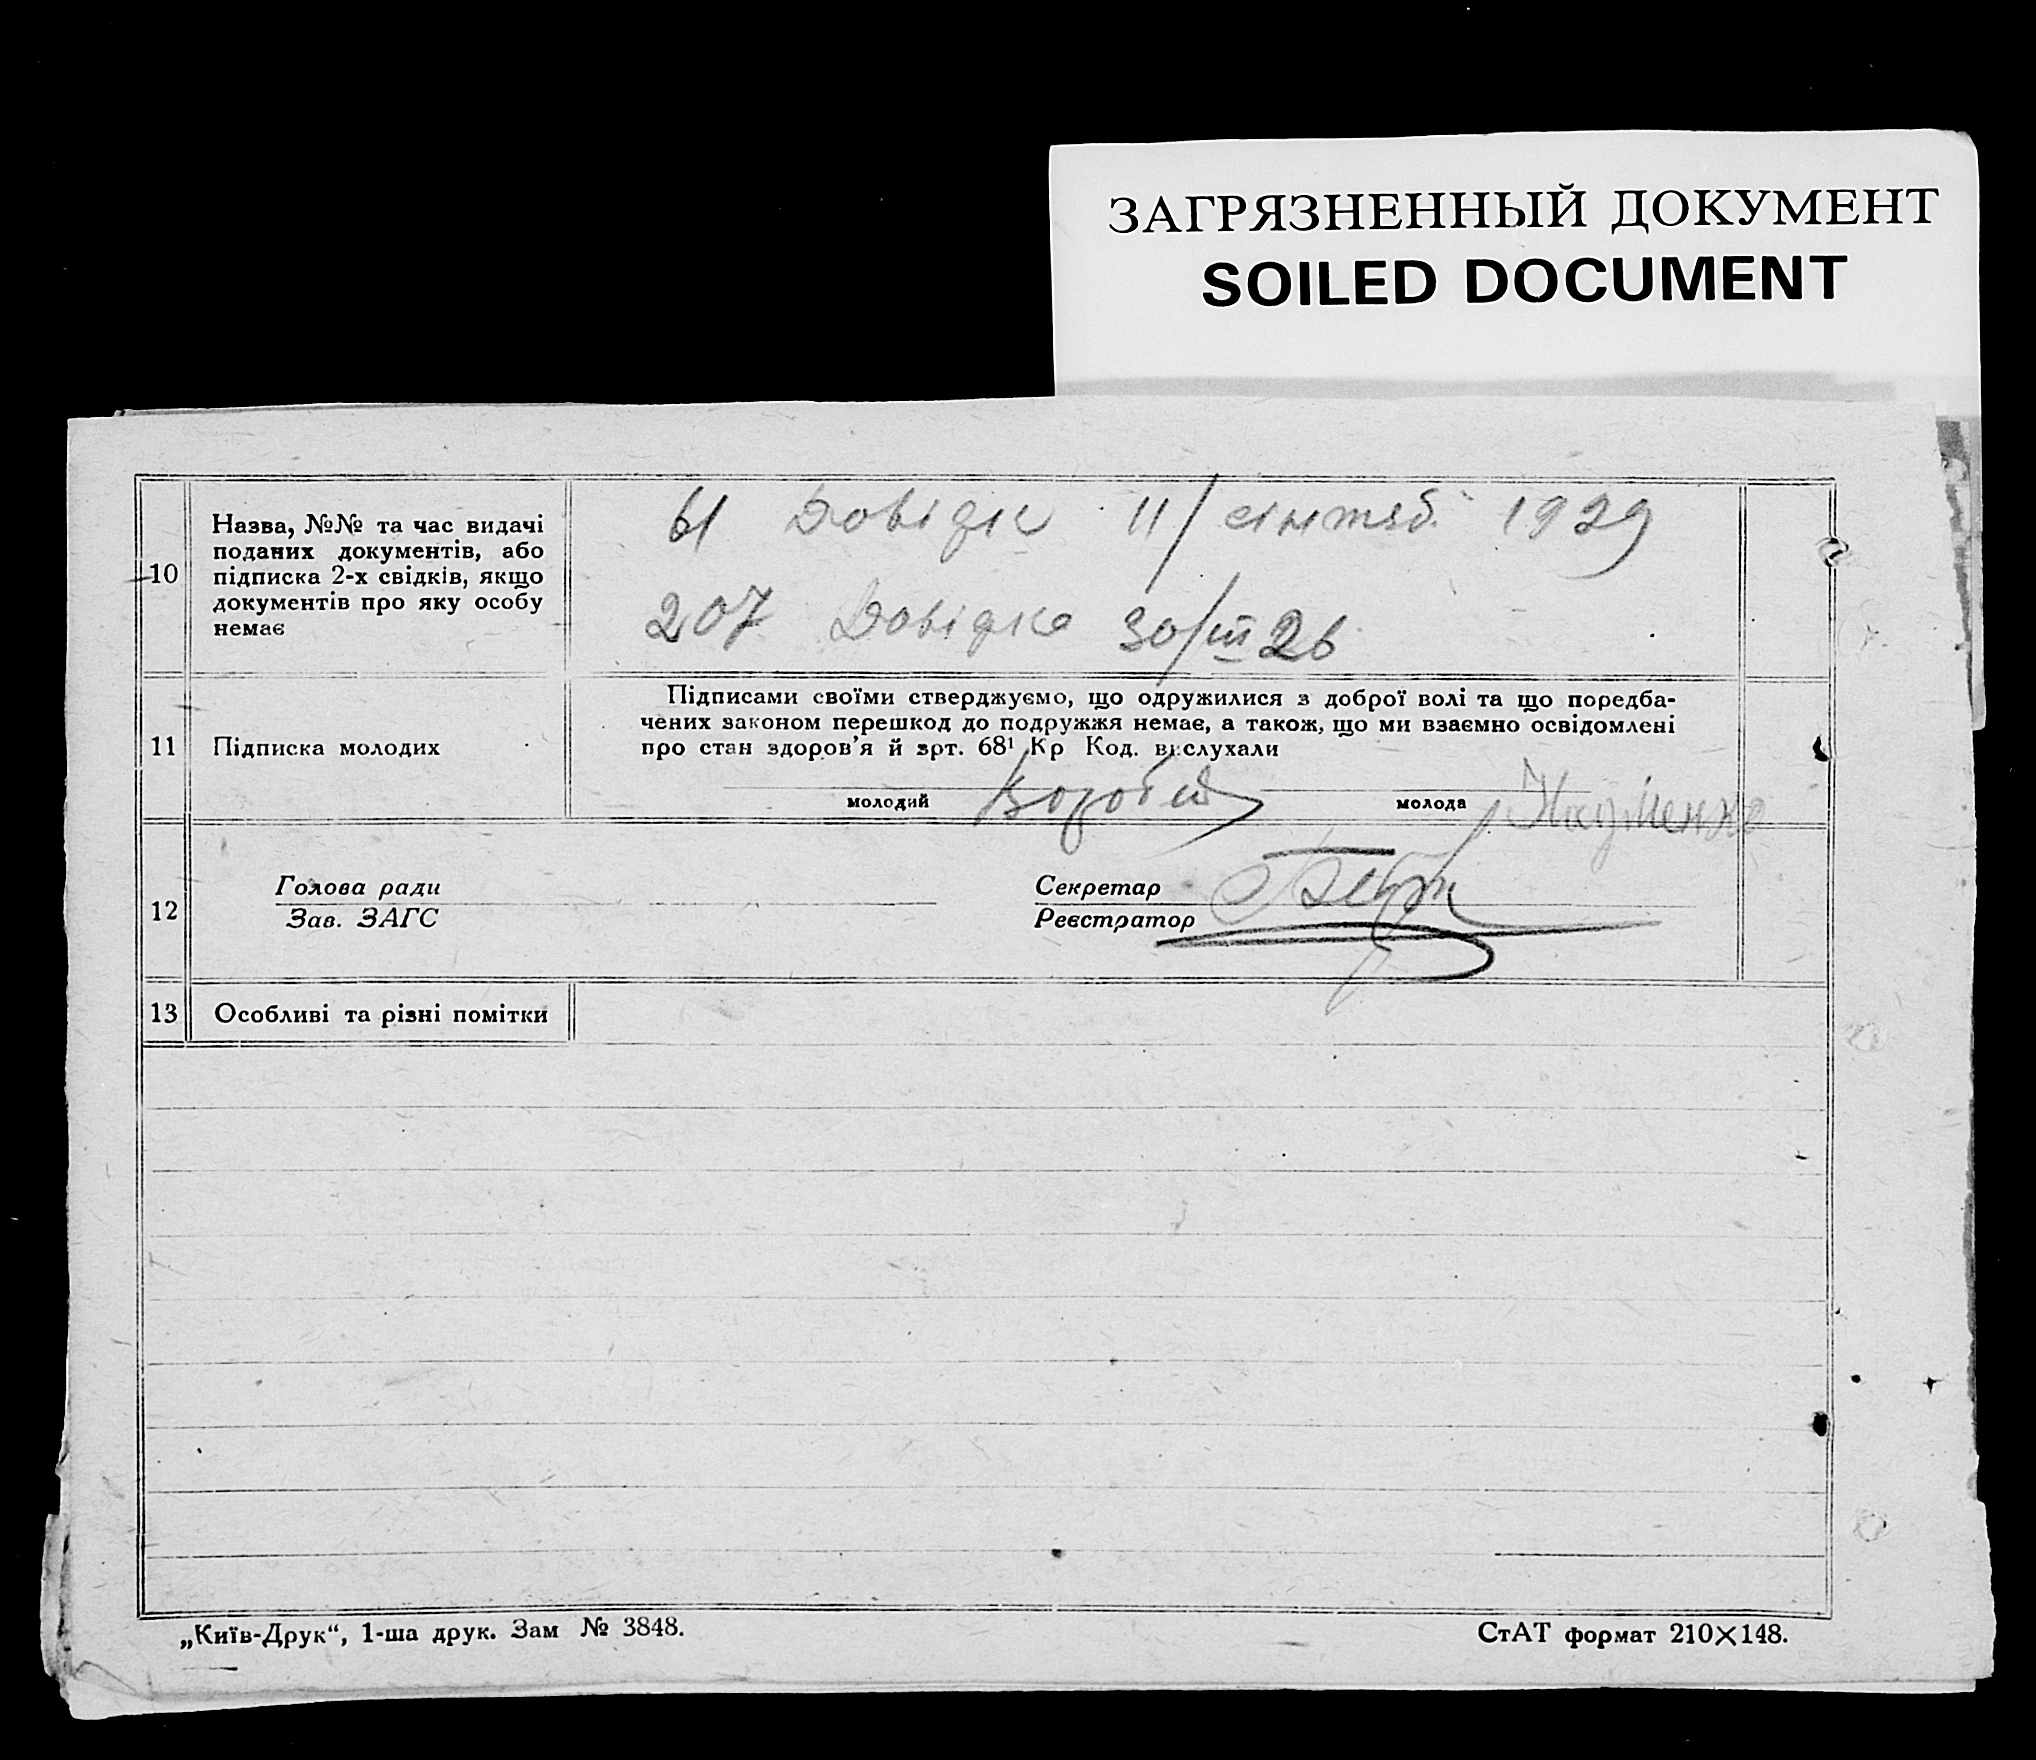 ЗАГРЯЗНЕННЫЙ ДОКУМЕНТ
SOILED DOCUMENT
10
Назва, №№ та час видачі
поданих документів, або
підписка 2-х свідків, якщо
документів про яку особу
немає
61 Довідк 11/ сентяб. 1929
207 Довідка 30/III 26
11
Підписка молодих
Підписами своїми стверджуємо, що одружилися з доброї волі та що поредба-
чених законом перешкод до подружжя немає, а також, що ми взаємно освідомлені
про стан здоров'я й зрт. 68¹ Кр Код. вислухали
молодий
молода Науменко
12
Голова ради
Зав. ЗАГС
Секретар
Реєстратор
13
Особливі та різні помітки
„Київ-Друк“, 1-ша друк. Зам № 3848.
СтАТ формат 210×148.